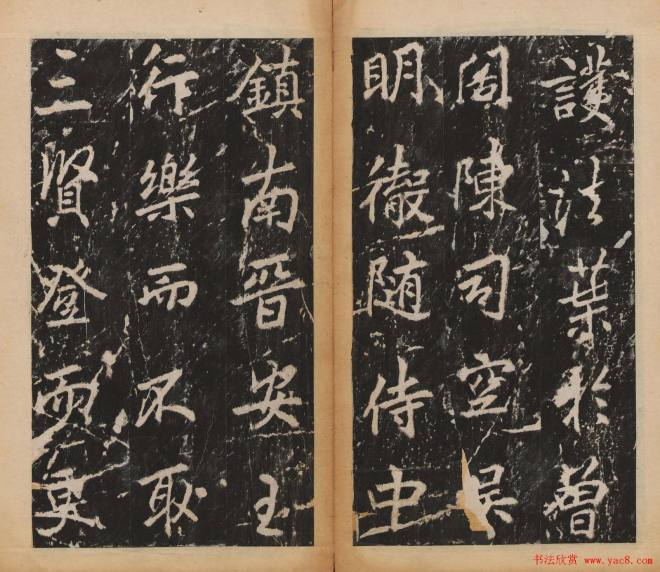 護法葉於曾
周陳司空吳
明徹随侍中
鎮南晉安王
行樂而不取
三賢登而更
书法欣赏 www.yac8.com